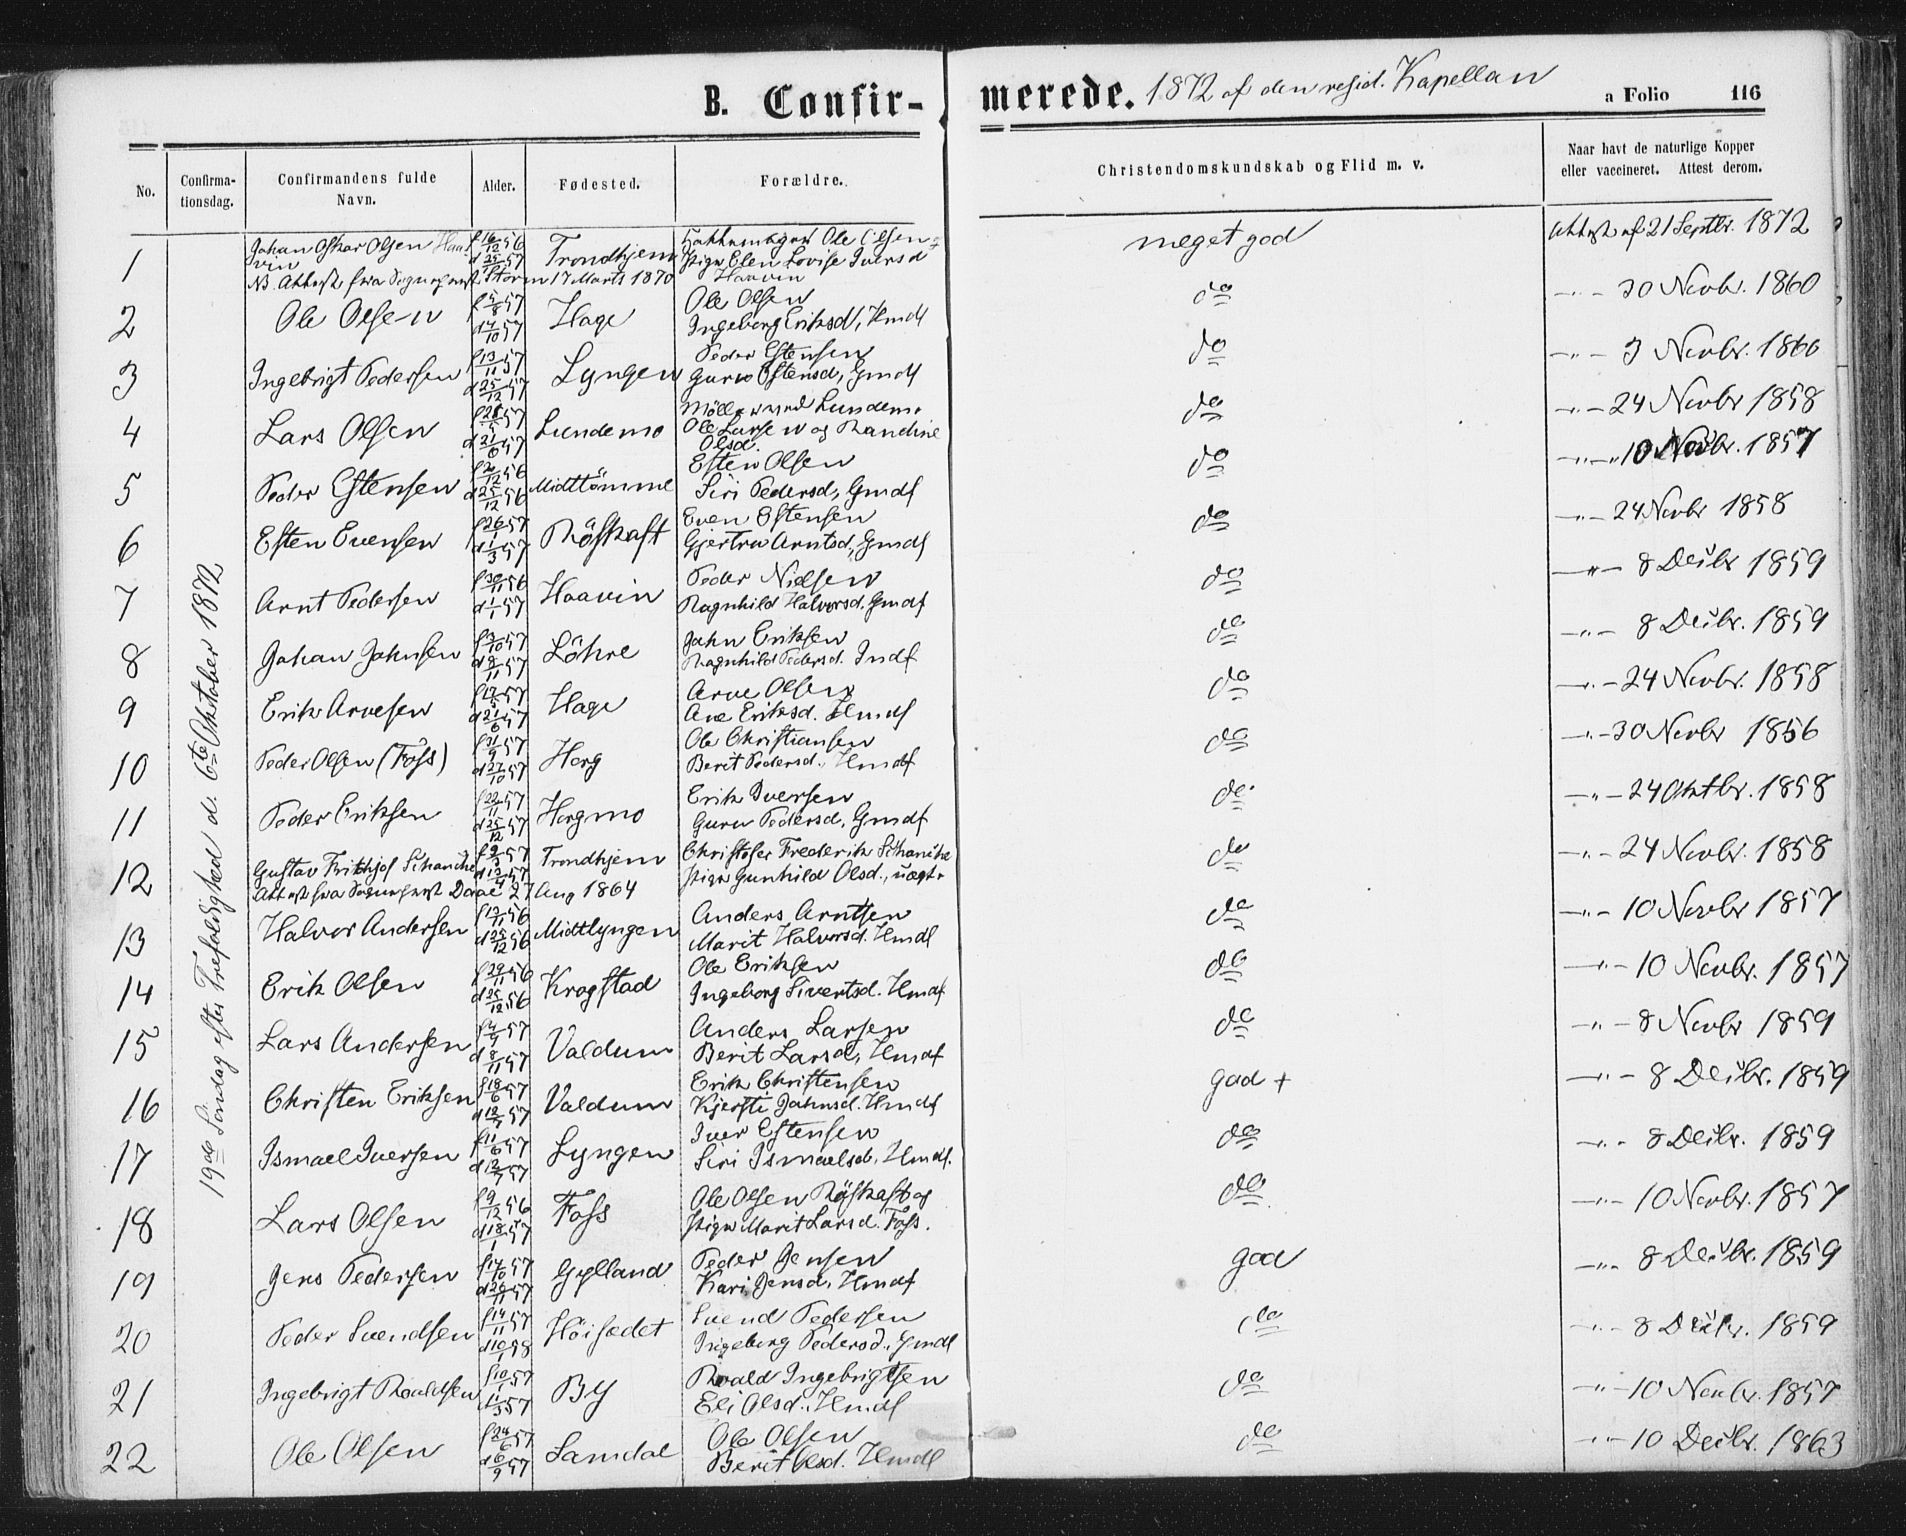 B. Confir-
merede. 1872 af den resid. Kapellan
a Folio 116
No.
Confirma-
tionsdag.
Confirmandens fulde
Navn.
Alder.
Fødested.
Forældre.
Christendomskundskab og Flid m. v.
Naar havt de naturlige Kopper
eller vaccineret. Attest derom.
19de Søndag efter Trefoldighed d. 6te Oktober 1872
1 Johan Oskar Olsen f 16/12 56 Trondhjem Ole Olsen meget god Attest af 21 Septbr. 1872
d 25/ 57 pige Elen Lovise Iversd
NB. Attest fra Sognepræst 17 Marts 1870 Haavin
2 Ole Olsen f 5/8 57 Hage Ole Olsen do -"- 30 Novbr. 1860
d 4/10 57 Ingeborg Eriksd, Hmdf
3 Ingebrigt Pedersen f 13/11 57 Lyngen Peder Estensen do -"- 3 Novbr. 1860
d 25/12 57 Guru Estensd, Gmdf
4 Lars Olsen 57 Lundemo Lundemo do -"- 24 Novbr 1858
d 21/ 57 Ole Larsen og Randine
Olsd.
5 Peder Estensen f 2/12 56 Midttømme Esten Olsen do -"- 10 Novbr. 1857
d 25/12 56 Siri Pedersd, Gmdf
6 Esten Evensen f 26/1 57 Røskaft Even Estensen do -"- 24 Novbr 1858
d 1/3 57 Gjertru Arntsd, Gmdf
7 Arnt Pedersen f 30/11 56 Haavin Peder Nielsen do -"- 8 Decbr 1859
d 1/1 57 Ragnhild Halvorsd. Gmdf
8 Johan Johnsen f 3/10 57 Løhre John Eriksen do -"- 8 Decbr. 1859
d 8/11 57 Ragnhild Pedersd. Indf
9 Erik Arnesen f 17/5 57 Hage Arne Olsen do -"- 24 Novbr. 1858
d 21/6 57 Ane Eriksd. Hmdf
10 Peder Olsen (Foss) f 21/9 57 Horg Ole Christiansen do -"- 30 Novbr 1856
d 27/10 57 Berit Pedersd. Hmdf
11 Peder Eriksen f 22/11 57 Horgmo Erik Iversen do -"- 24 Oktbr. 1858
d 25/12 57 Guru Pedersd, Gmdf
12 Gustav Frithjof Schanche 57 Trondhjem Christofer Frederik Schanche do -"- 24 Novbr. 1858
d 13/4 57 pige Gunhild Olsd., uægte
Attest fra Sognepræst Daae 27 Aug 1864
13 Halvor Andersen f 13/11 56 Midtlyngen Anders Arntsen do -"- 10 Novbr 1857
d 25/12 56 Marit Halvorsd. Hmdf
14 Erik Olsen f 29/11 56 Krogstad Ole Eriksen do -"- 10 Novbr. 1857
d 25/12 56 Ingeborg Sivertsd. Hmdf
15 Lars Andersen 57 Valdum Anders Larsen do -"- 8 Novbr 1859
d 8/11 57 Berit Larsd, Hmdf
16 Christen Eriksen f 18/6 57 Valdum Erik Christensen god + -"- 8 Decbr. 1859
d 12/7 57 Kjersti Johnsd. Hmdf
17 Ismael Iversen f 11/6 57 Lyngen Iver Estensen do -"- 8 Decbr. 1859
d 12/7 57 Siri Ismaelsd. Hmdf.
18 Lars Olsen f 9/12 56 Foss Ole Olsen Røskaft og do -"- 10 Novbr. 1857
d 18/1 57 pige Marit Larsd. Foss.
19 Jens Pedersen f 17/10 57 Gylland Peder Jensen god -"- 8 Decbr. 1859
d 26/11 57 Kari Jensd, Hmdf
20 Peder Svendsen f 14/11 57 Høisædet Svend Pedersen do -"- 8 Decbr. 1859
d 10/1 58 Ingeborg Pedersd. Gmdf
21 Ingebrigt Roaldsen f 10/1 57 By Roald Ingebrigtsen do -"- 10 Novbr. 1857
d 1/3 57 Eli Olsd. Hmdf
22 Ole Olsen f 24/6 57 Samdal Ole Olsen do -"- 10 Decbr. 1863
d 6/9 57 Berit Olsd. Hmdf